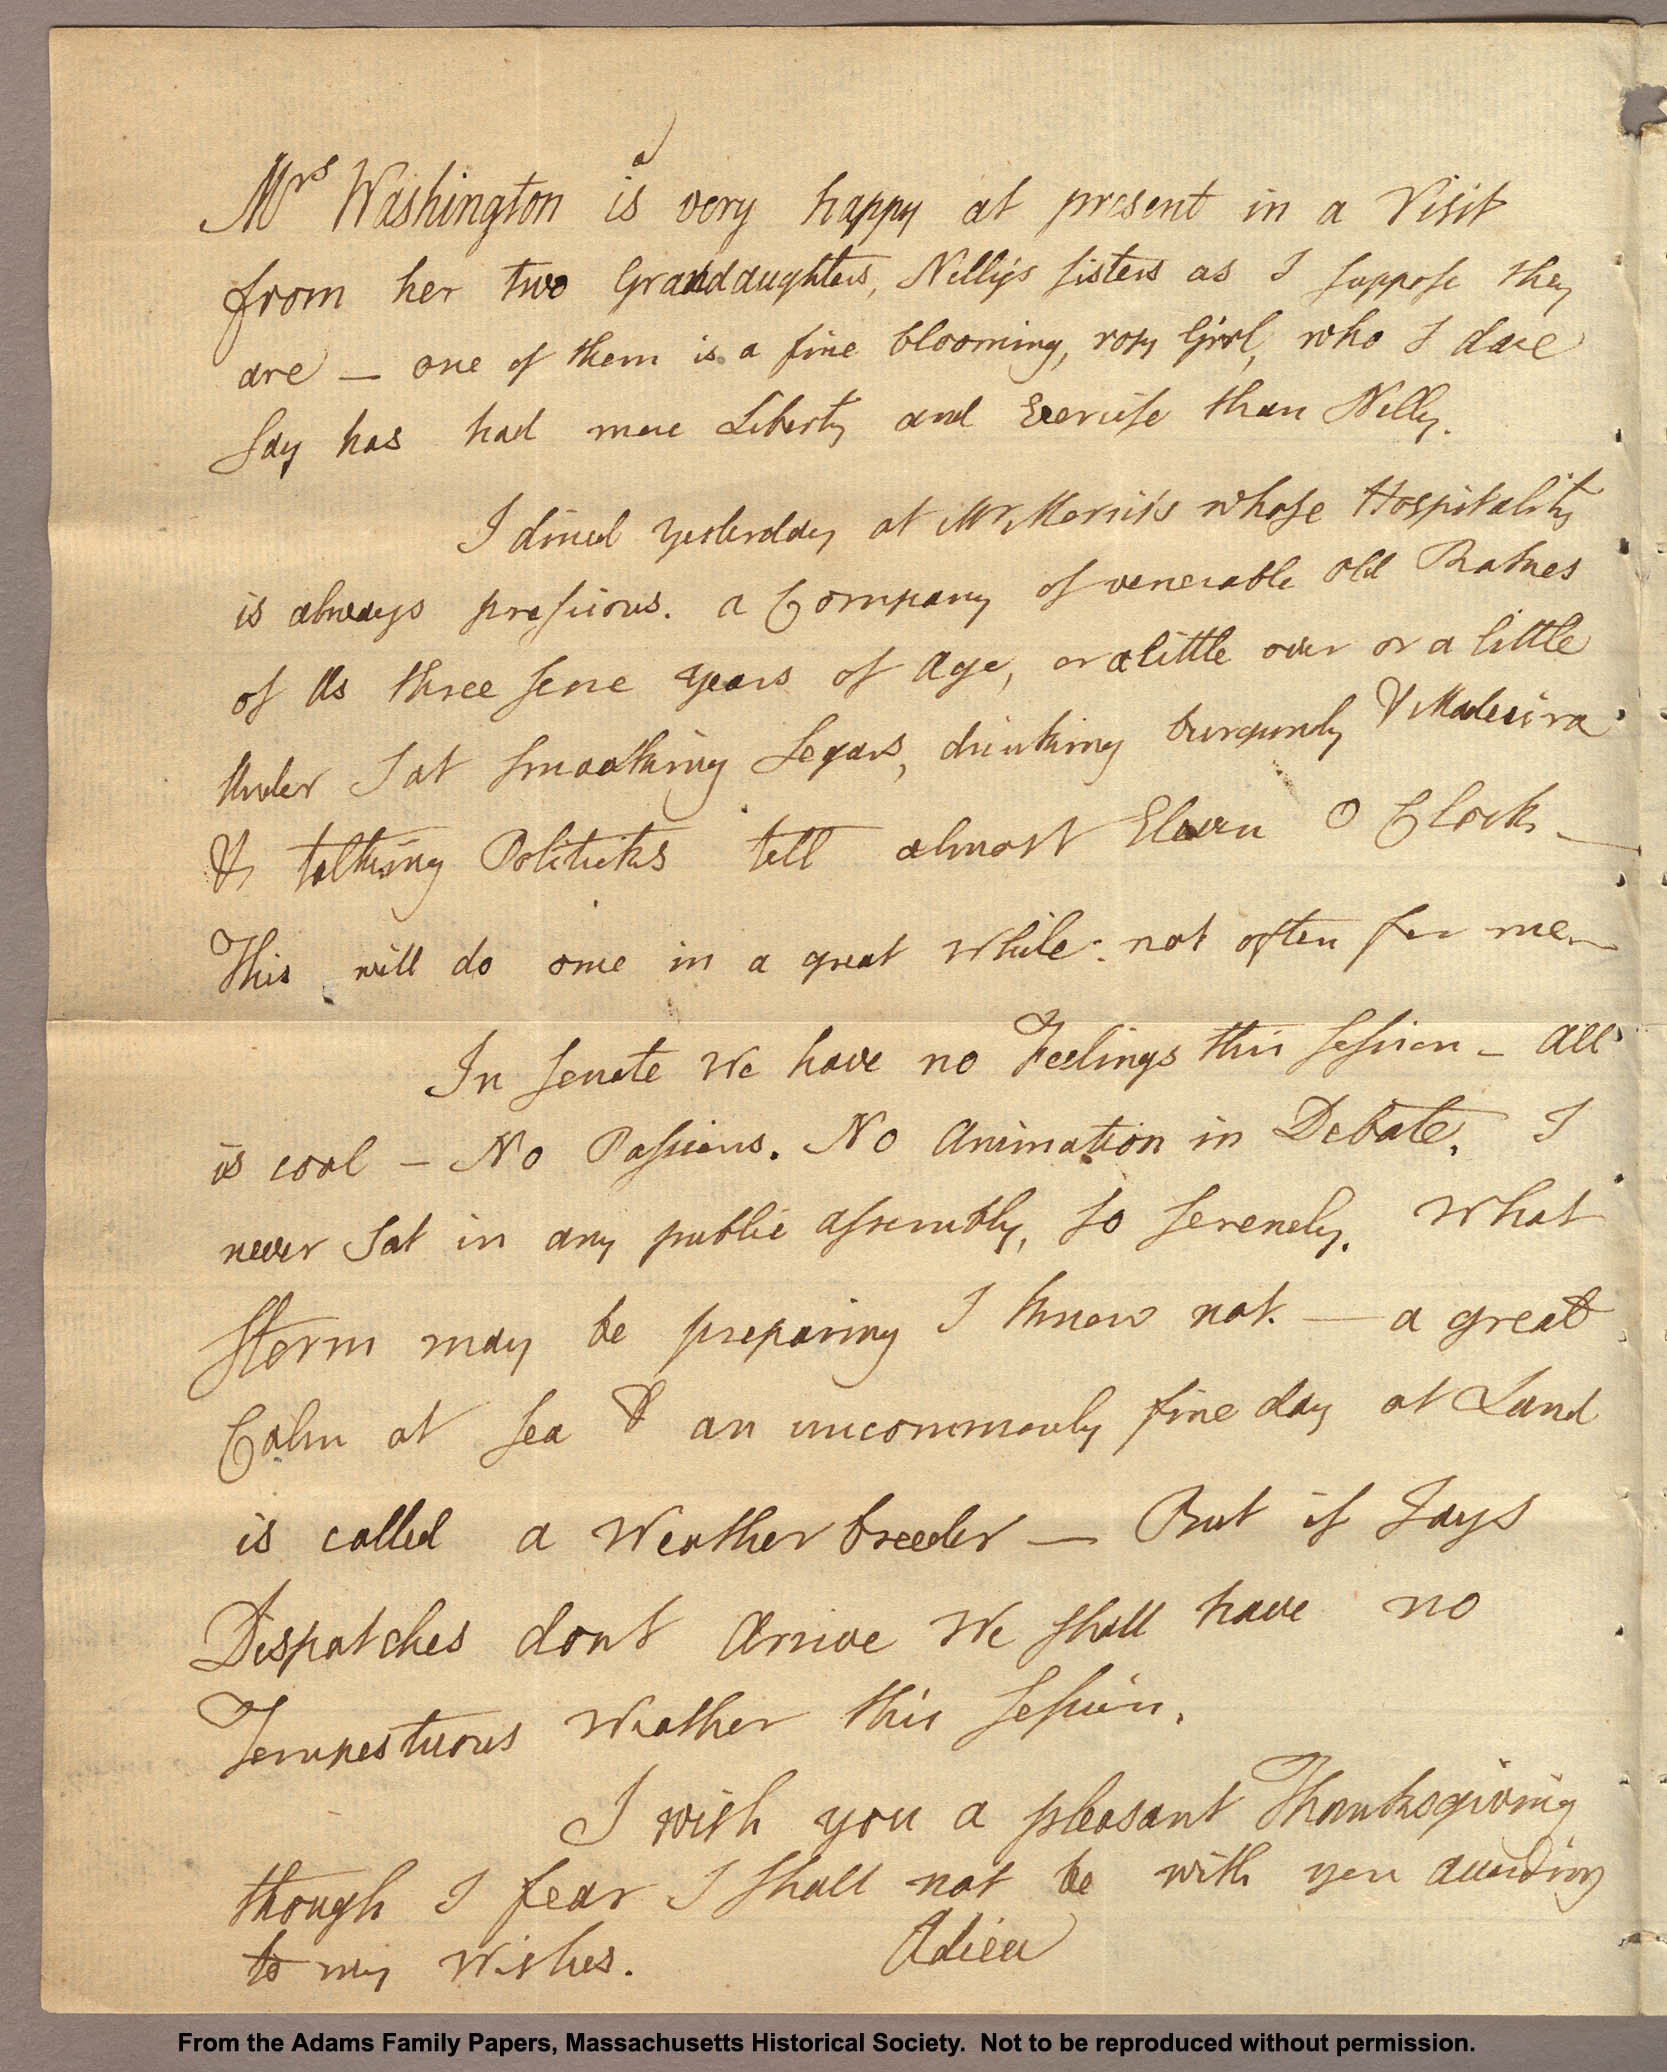 Mrs Washington is very happy at present in a Visit
from her two Granddaughters, Nelly's sisters as I suppose they
are — one of them is a fine blooming, rosy Girl, who I dare
say has had more Liberty and Exercise than Nelly.
I dined yesterday at Mr Morris's whose Hospitality
is always precious. a Company of venerable old Rakes
of Us three score years of Age, or a little over or a little
Under Sat smoaking Segars, drinking burgundy & Madeira
& talking Politicks till almost Eleven O Clock —
This will do once in a great While: not often for me —
In Senate We have no Feelings this session — All
is cool — No Passions. No Animation in Debate. I
never Sat in any public assembly, so serenely. What
Storm may be preparing I know not. — a great
Calm at Sea & an uncommonly fine day at Land
is called a Weather breeder — But if Jays
Dispatches dont Arrive We shall have no
Tempestuous Weather this session.
I wish you a pleasant Thanksgiving
though I fear I shall not be with you according
to my Wishes. Adieu
From the Adams Family Papers, Massachusetts Historical Society. Not to be reproduced without permission.